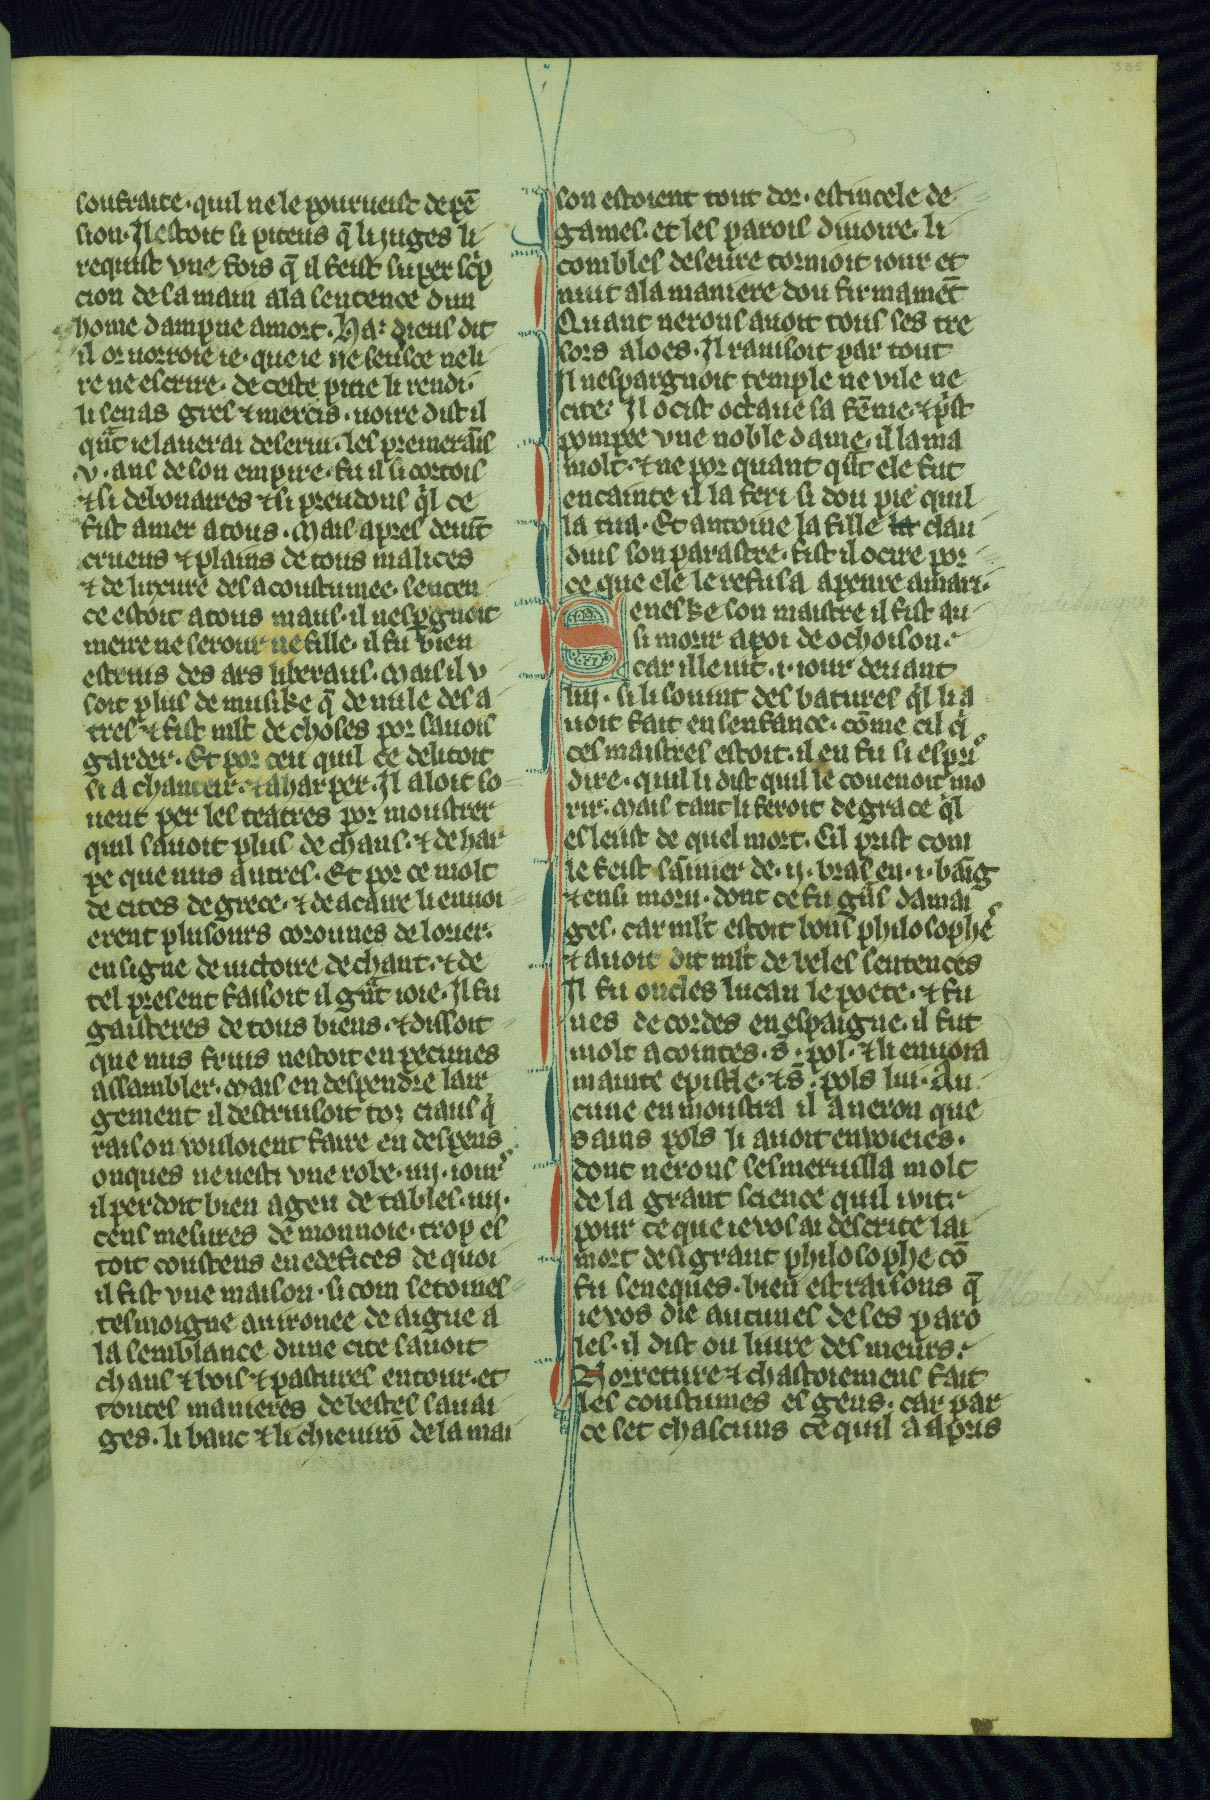 soufraite · quil ne le pourueist de pē
sion · Il estoit si piteus q̄ li iuges li
requist vne fois q̄ il feist super scp̄
cion de sa main a la sentence dun
home dampne a mort · Ha · dieus dit
il or uorroie ie · que ie ne seusce ne li
re ne escrire · de ceste pitie li rendi ·
li senas gres ⁊ mercis · uoire dist il
qūt ie lauerai deserui · les premerāis
v · ans de son empire · fu il si cortois
⁊ si debonaires ⁊ si preudons q̄l ce
fist amer a tous · Mais apres deuīt
crueus ⁊ plains de tous malices
⁊ de luxure des acoustumee · sa
ce estoit a tous maus · il nespgnoit
meire ne serour ne fille · il fu bien
estruis des ars liberaus · Mais il v
soit plus de musike q̄ de nule des a
tres ⁊ fist mlt de choses por sa uois
garder · Et por ceu quil ce delitoit
si a chanteir · ⁊ a harper · Il aloit so
uent per les teatres por moustrer
quil sauoit plus de chans · ⁊ de har
pe que nus autres · Et por ce molt
de cites de grece · ⁊ de acaire li enuoi
erent plusours corounes de lorier ·
en signe de uictoire de chant · ⁊ de
tel present faisoit il gūt ioie · Il fu
gaisteres de tous biens · ⁊ dissoit
que nus fruis nestoit en pecunes
assambler · Mais en despendre lair
gement il destruisoit toz ciaus q̄
raison vouloient faire en despens
onques ne uesti vne robe · iiij · iours
il perdoit bien a geu de tables · iiij ·
cens mesures de monnoie · trop es
toit coustens en edefices de quoi
il fist vne maison · si com setoines
tesmoigne auironee de aigue a
la semblance dune cite sauoit
chans ⁊ bois ⁊ pastures entour · et
toutes manieres de bestes sauai
ges · li banc ⁊ li cheuirō de la mai
son estoient tout dor · estincele de
games · et les parois diuoire · li
combles deseure tornoit iour et
nuit a la maniere dou firmamēt
Quant nerons auoit tous ses tre
sors aloes · Il rauisoit par tout
Il nespargnoit temple ne vile ne
cite · Il ocist octaue sa fēme · ⁊ pist
pompee vne noble dame · il lama
molt · ⁊ ne por quant qūt ele fut
encainte il la feri si dou pie quil
la tua · Et antoine la fille clau
dius son parastre · fist il ocire por
ce que ele le refusa a penre a mari ·
Seneske son maistre il fist au
si morir a poi de ochoison ·
car ille uit · i · iour deuant
lui · si li souint des batures q̄l li a
uoit fait en senfance · cōme cil q̄
ces maistres estoit · il en fu si espris
dire · quil li dist quil le couenoit mo
rir · Mais tant li feroit de grace q̄l
esleust de quel mort · Cil prist com
le feist sainnier de · ij · bras en · i · baīg
⁊ ensi moru · dont ce fu gūs damai
ges · car mlt estoit bons philosophes
⁊ auoit dit mlt de beles sentences
Il fu oncles lucan le poete · ⁊ fu
nes de cordes en espaigne · il fut
molt acointes · s̄ · pol · ⁊ li enuoia
mainte epistle · ⁊ s̄ · pols lui · Au
cune en moustra il a neron que
sains pols li auoit enuoieies ·
dont nerons sesmeruilla molt
de la grant science quil i uit ·
pour ce que ie vos ai descrite lai
mort de si grant philosophe cō
fu seneques · bien est raisons q̄
ie vos die aucunes de ses paro
les · il dist ou liure des meurs ·
Norreture ⁊ chastoiemens fait
les coustumes es gens · car par
ce set chascuns ce quil a apris